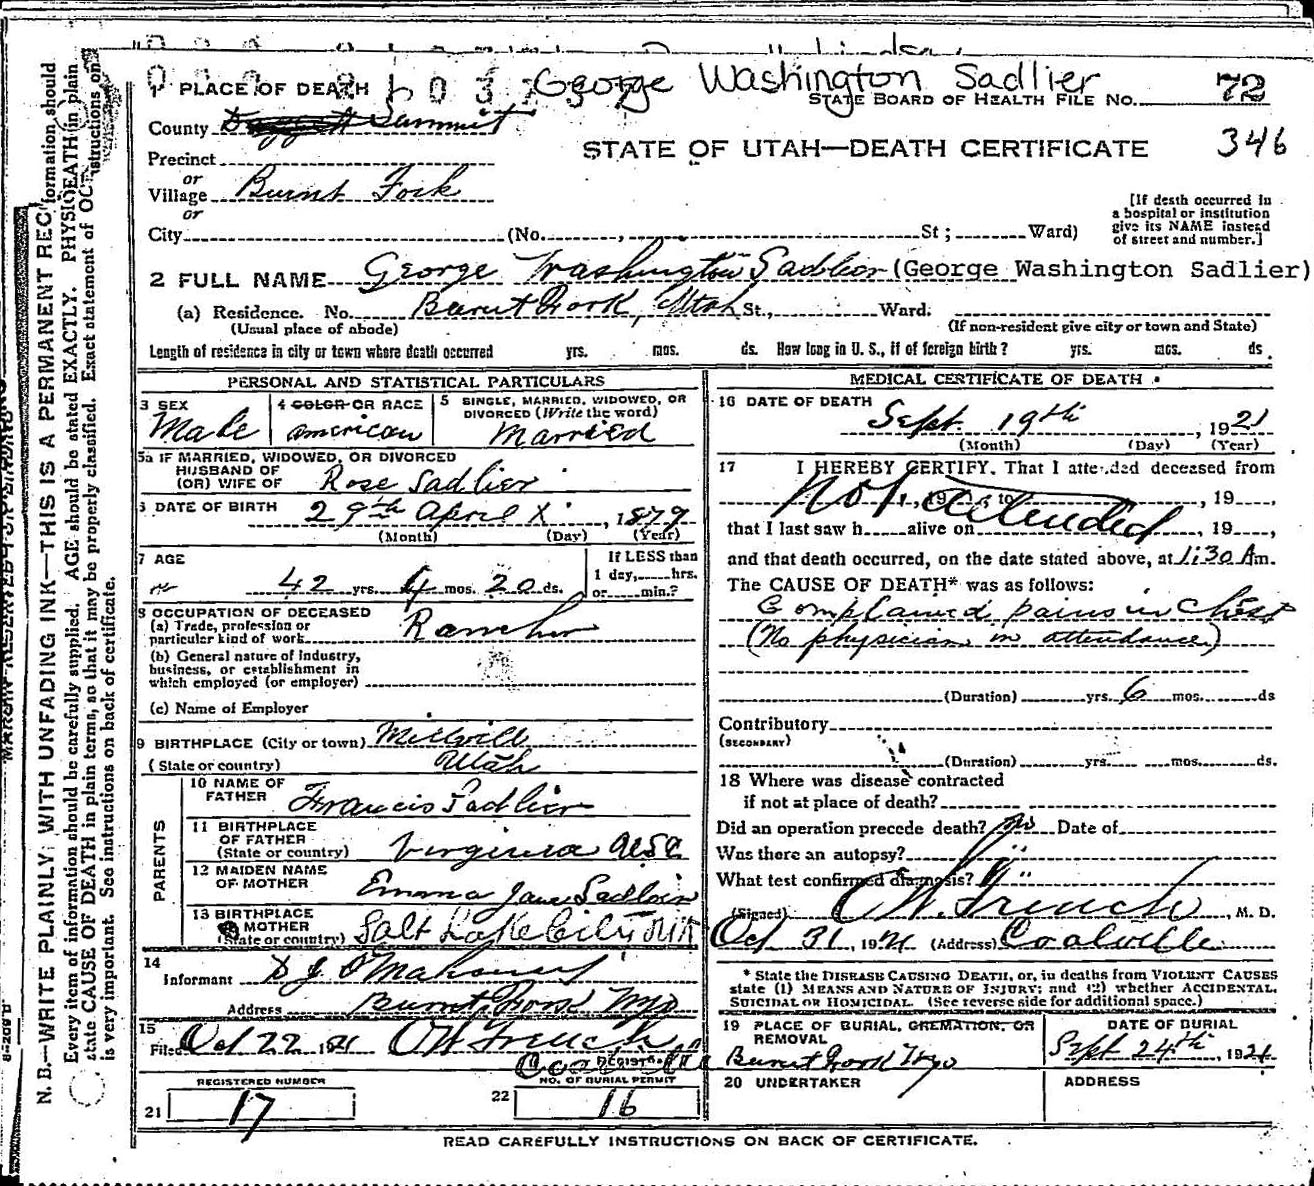 George Washington Sadlier
1 PLACE OF DEATH
STATE BOARD OF HEALTH FILE No. 72
County Daggett Summit
STATE OF UTAH—DEATH CERTIFICATE 346
Precinct
or
Village Burnt Fork
or
City (No. , St; Ward)
[If death occurred in a hospital or institution give its NAME instead of street and number.]
2 FULL NAME George Washington Sadlier (George Washington Sadlier)
(a) Residence. No. Burnt Fork, Utah St., Ward.
(Usual place of abode) (If non-resident give city or town and State)
Length of residence in city or town where death occurred yrs. mos. ds. How long in U. S., if of foreign birth? yrs. mos. ds.
PERSONAL AND STATISTICAL PARTICULARS
3 SEX Male
4 COLOR OR RACE american
5 SINGLE, MARRIED, WIDOWED, OR DIVORCED (Write the word) Married
5a IF MARRIED, WIDOWED, OR DIVORCED
HUSBAND OF
(OR) WIFE OF Rose Sadlier
6 DATE OF BIRTH 29th April, 1879
(Month) (Day) (Year)
7 AGE 42 yrs. 4 mos. 20 ds.
If LESS than
1 day, hrs.
or min.?
8 OCCUPATION OF DECEASED
(a) Trade, profession or particular kind of work Rancher
(b) General nature of industry,
business, or establishment in
which employed (or employer)
(c) Name of Employer
9 BIRTHPLACE (City or town) Millville
(State or country) Utah
PARENTS
10 NAME OF FATHER Francis Sadlier
11 BIRTHPLACE OF FATHER
(State or country) Virginia USA
12 MAIDEN NAME OF MOTHER Emma Jane Sadlier
13 BIRTHPLACE MOTHER
(State or country) Salt Lake City
14 Informant D J O'Mahoney
Address Burnt Fork Wyo
15 Filed Oct 22, 1921 O W French
REGISTRAR
REGISTERED NUMBER
21 17
NO. OF BURIAL PERMIT
22 16
MEDICAL CERTIFICATE OF DEATH
16 DATE OF DEATH Sept. 19th, 1921
(Month) (Day) (Year)
17 I HEREBY CERTIFY, That I attended deceased from
not attended, 19
that I last saw h alive on , 19 ,
and that death occurred, on the date stated above, at 1:30 Am.
The CAUSE OF DEATH* was as follows:
Complained pains in Chest
(No physician in attendance)
(Duration) yrs. 6 mos. ds
Contributory
(SECONDARY)
(Duration) yrs. mos. ds.
18 Where was disease contracted
if not at place of death?
Did an operation precede death? no Date of
Was there an autopsy? "
What test confirmed diagnosis? "
(Signed) O W. French, M. D.
Oct 31, 1921 (Address) Coalville
* State the DISEASE CAUSING DEATH, or, in deaths from VIOLENT CAUSES
state (1) MEANS AND NATURE OF INJURY; and (2) whether ACCIDENTAL,
SUICIDAL OR HOMICIDAL. (See reverse side for additional space.)
19 PLACE OF BURIAL, CREMATION, OR REMOVAL
Burnt Fork Wyo
DATE OF BURIAL
Sept 24th, 1921
20 UNDERTAKER ADDRESS
READ CAREFULLY INSTRUCTIONS ON BACK OF CERTIFICATE.
MARGIN RESERVED FOR BINDING
N. B.—WRITE PLAINLY, WITH UNFADING INK—THIS IS A PERMANENT REC
Every item of information should be carefully supplied. AGE should be stated EXACTLY. PHYSI
state CAUSE OF DEATH in plain terms, so that it may be properly classified. Exact statement of OC
is very important. See instructions on back of certificate.